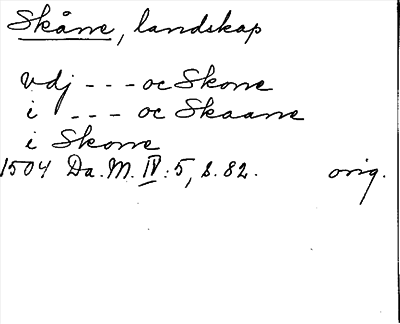 Skåne, landskap
vdj - - - oc Skone
i - - - oc Skaane
i Skone
1504 Da. M. IV: 5, s. 82. orig.